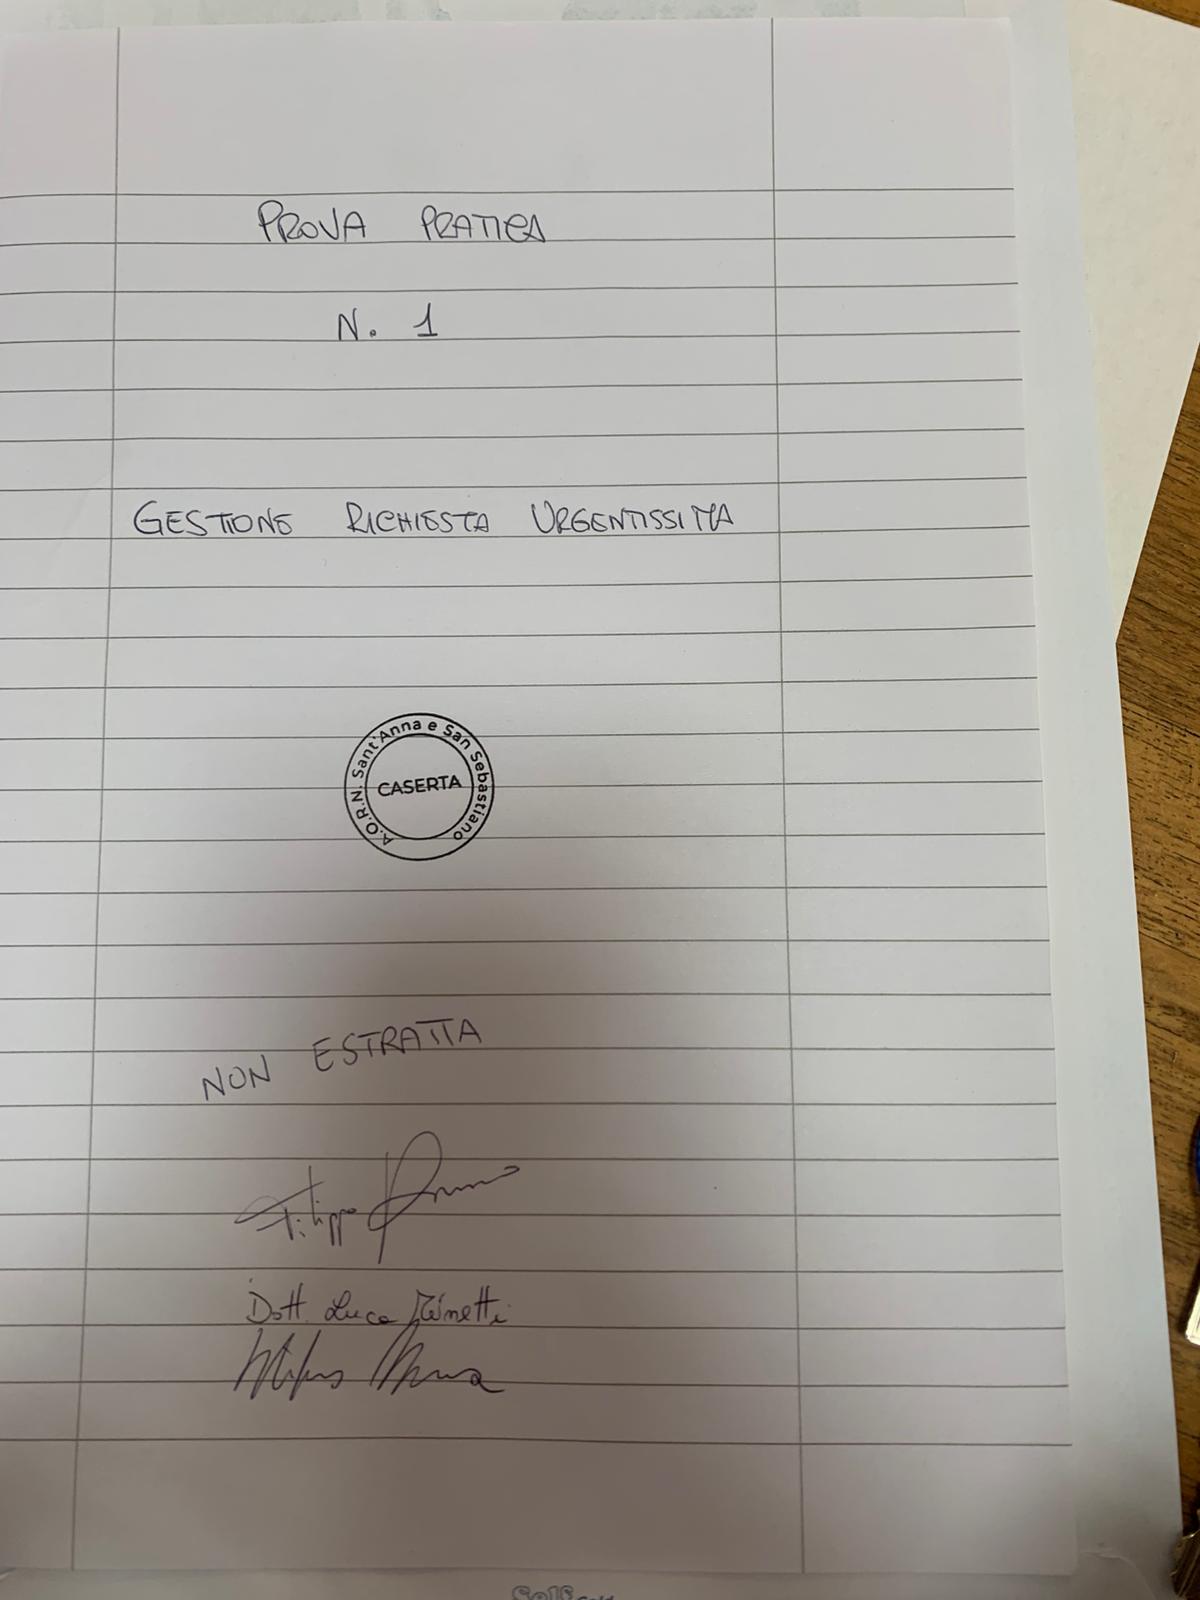 PROVA PRATICA
N. 1
GESTIONE RICHIESTA URGENTISSIMA
A.O.R.N. Sant'Anna e San Sebastiano
CASERTA
NON ESTRATTA
Filippo
Dott. Luca